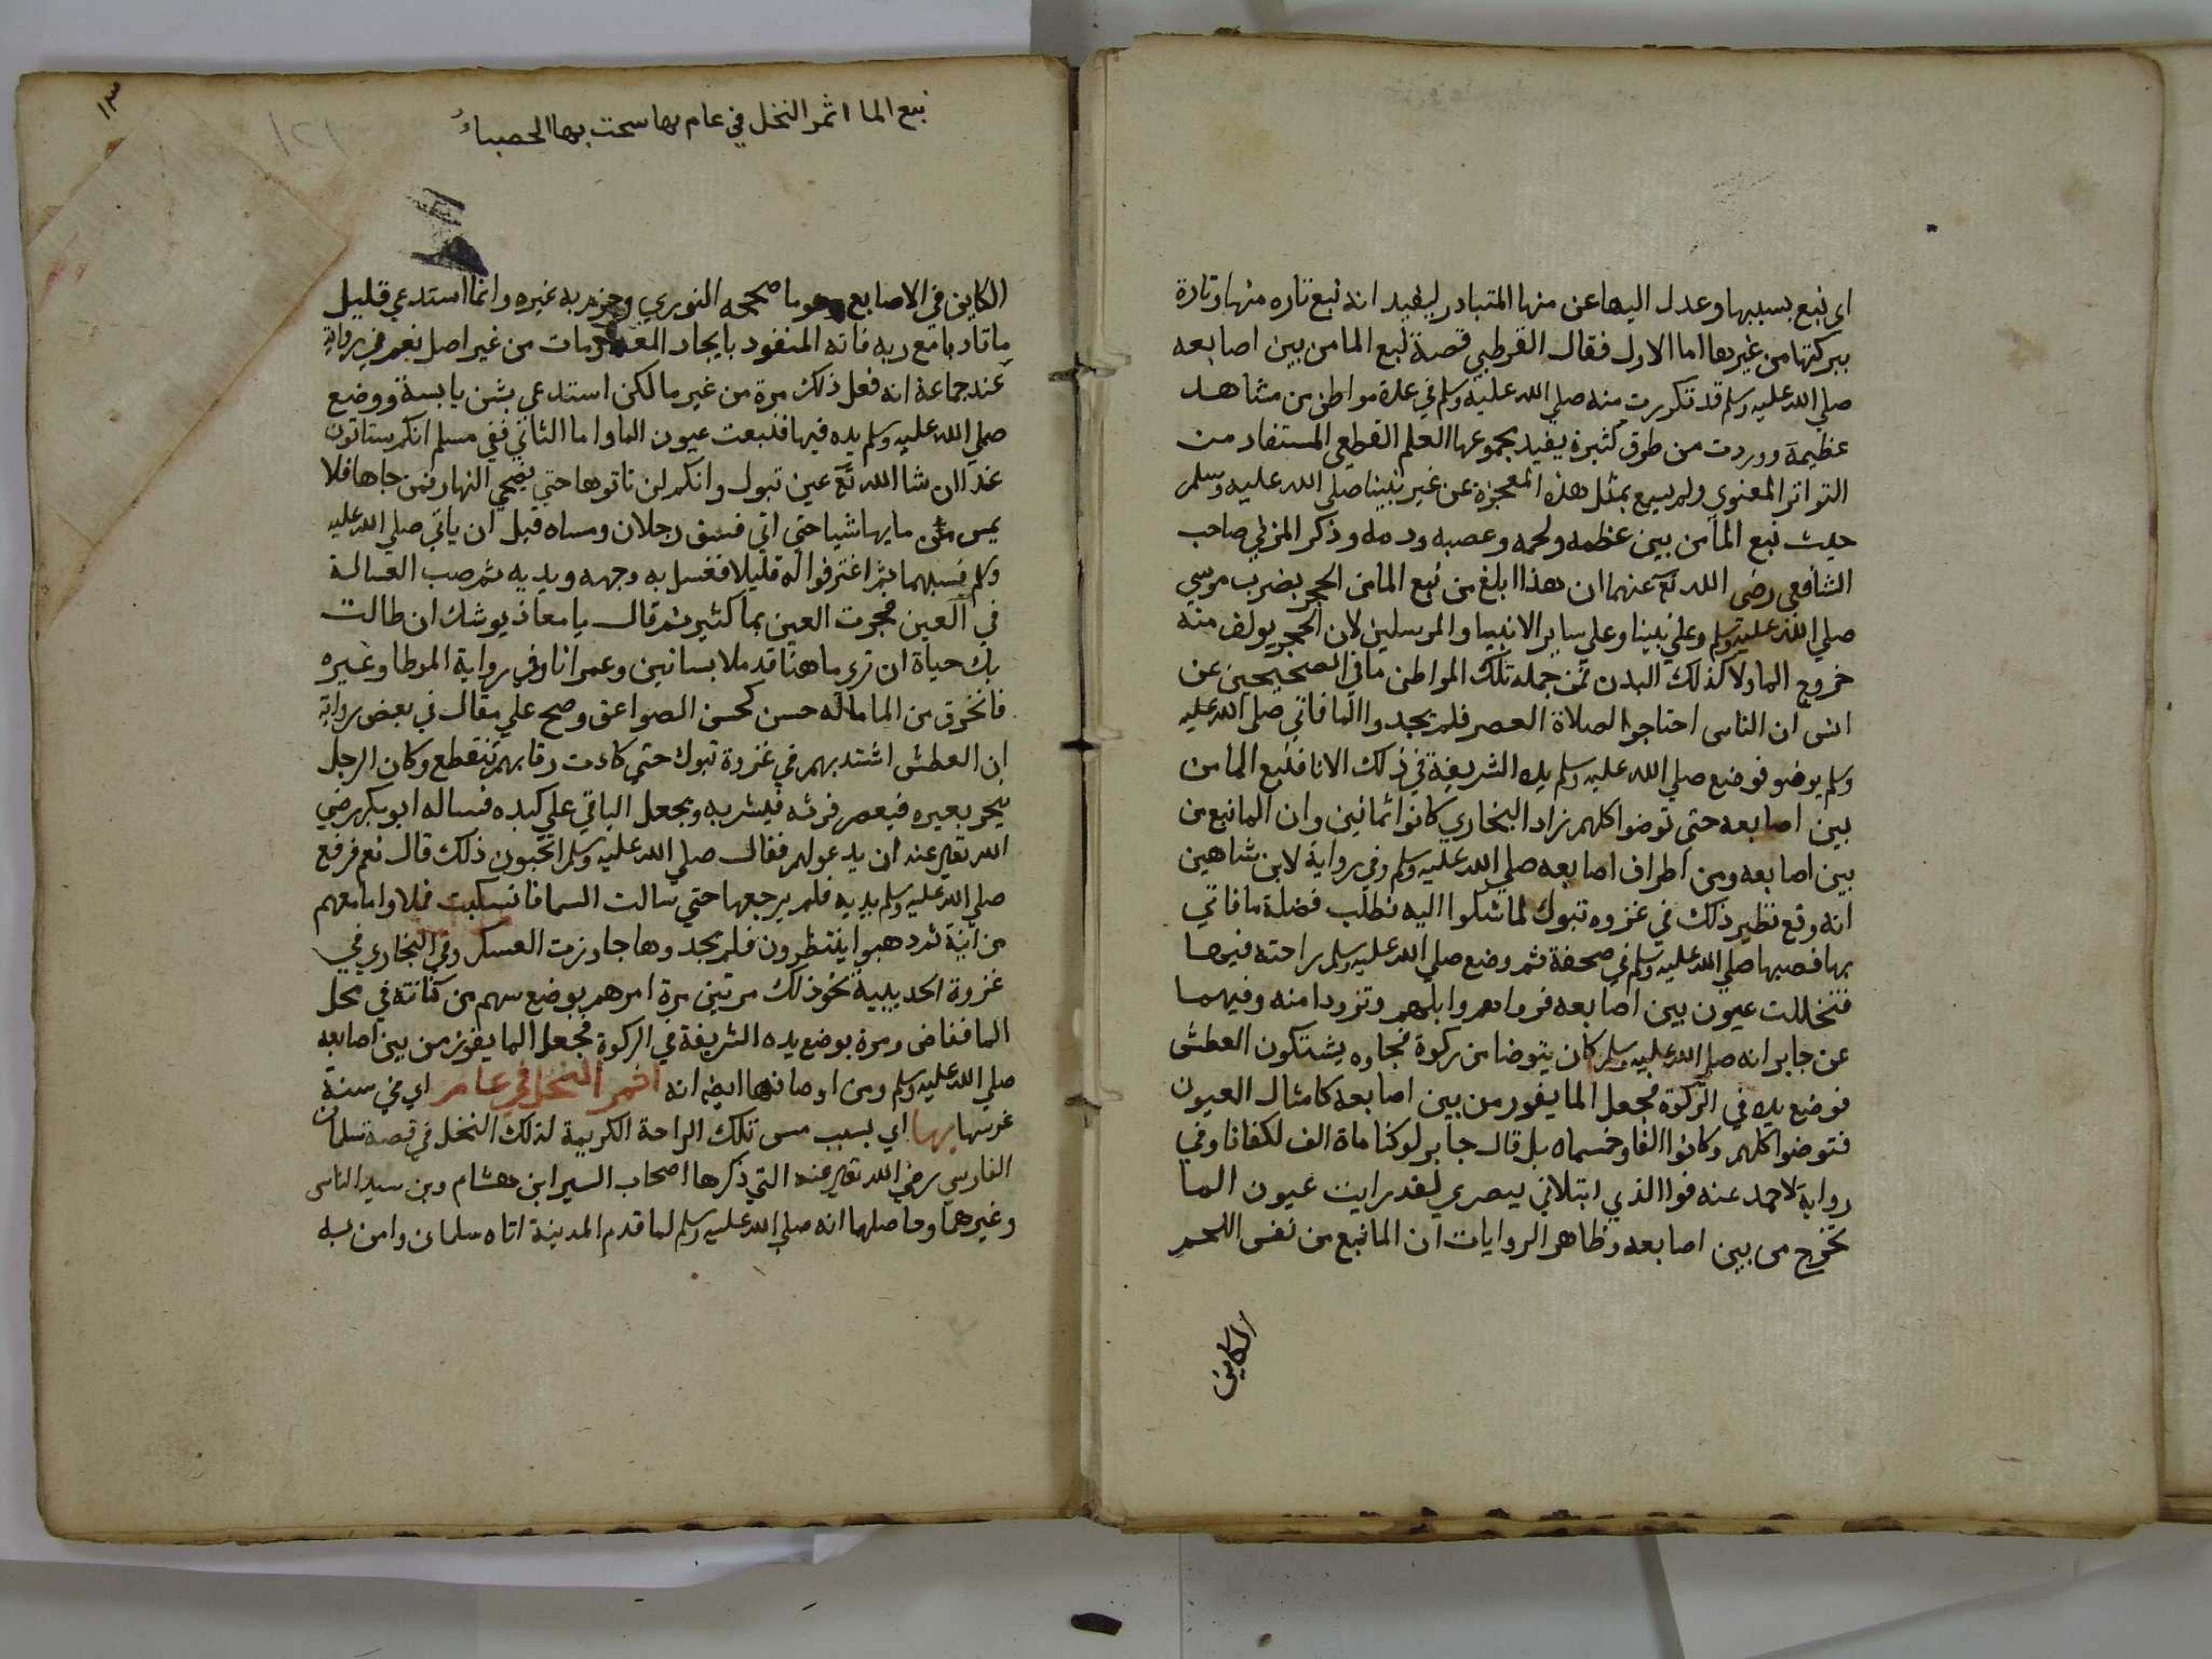 اي نبع بسببها وعدل اليها عن منها المتبادر ليفيد انه نبع تاره منها وتارة
ببركتها من غيرها اما الاول فقال القرطبي قصة نبع الما من بين اصابعه
صلي الله عليه وسلم قد تكررت منه صلي الله عليه وسلم في عدة مواطن من مشاهد
عظيمة ووردت من طرق كثيرة يفيد مجموعها العلم القطعي المستفاد من
التواتر المعنوي ولم يسمع بمثل هذه المعجزة عن غير نبينا صلي الله عليه وسلم
حيث نبع الما من بين عظمه ولحمه وعصبه ودمه وذكر المزني صاحب
الشافعي رضي الله تع عنهما ان هذا ابلغ من نبع الما من الحجر بضرب موسي
صلي الله عليه وسلم وعلي نبينا وعلي ساير الانبيا والمرسلين لان الحجر يولف منه
خروج الما ولا كذلك البدن فمن جمله تلك المواطن ما في الصحيحين عن
انس ان الناس احتاجوا لصلاة العصر فلم يجدوا الما فاتي صلي الله عليه
وسلم بوضو فوضع صلي الله عليه وسلم يده الشريفة في ذلك الانا فنبع الما من
بين اصابعه حتي توضوا كلهم زاد البخاري كانوا ثمانين وان الما نبع من
بين اصابعه ومن اطراف اصابعه صلي الله عليه وسلم وفي رواية لابن شاهين
انه وقع نظير ذلك في غزوه تبوك لما شكوا اليه فطلب فضلة ما فاتي
بها فصبها صلي الله عليه وسلم في صحفة ثم وضع صلي الله عليه وسلم راحته فيها
فتخللت عيون بين اصابعه فرواهم وابلهم وتزودا منه وفيهما
عن جابر انه صلي الله عليه وسلم كان يتوضا من ركوة فجاوه يشتكون العطش
فوضع يده في الركوة فجعل الما يفور من بين اصابعه كامثال العيون
فتوضوا كلهم وكانوا الفا وخمسماه بل قال جابر لو كنا ماة الف لكفانا وفي
رواية لاحمد عنه فوا الذي ابتلاني ببصري لقد رايت عيون الما
تخرج من بين اصابعه وظاهر الروايات ان الما نبع من نفس اللحم
الكاين
١٣
١٢١
نبع الما اثمر النخل في عام بها سحت بها الحصباءُ
الكاين في الاصابع وهو ما صححه النوري وجزم به غيره وانما استدعي قليل
ما تادبا مع ربه فانه المنفود بايجاد المعدومات من غير اصل نعم في رواية
عند جماعة انه فعل ذلك مرة من غير ما لكن استدعي بشن يابسة ووضع
صلي الله عليه وسلم يده فيها فنبعت عيون الما واما الثاني ففي مسلم انكم ستاتون
غدا ان شا الله تع عين تبوك وانكم لن تاتوها حتي يضحي النهار فمن جاها فلا
يمس من مايها شيا حتي اتي فسبق رجلان ومساه قبل ان ياتي صلي الله عليه
وسلم فسبهما ثم اغترفوا له قليلا فغسل به وجهه ويديه ثم صب الغسالة
في العين فجرت العين بما كثير ثم قال يا معاذ يوشك ان طالت
بك حياة ان تري ما هنا قد ملا بساتين وعمرانا وفي رواية الموطا وغيره
فانخرق من الما ماله حسن كحسن الصواعق وصح علي مقال في بعض رواية
ان العطش اشتد بهم في غزوة تبوك حتي كادت رقابهم تنقطع وكان الرجل
ينحر بعيره فيعصر فرثه فيشربه ويجعل الباقي علي كبده فساله ابو بكر رضي
الله تعالي عنه ان يدعو لهم فقال صلي الله عليه وسلم اتحبون ذلك قال نعم فرفع
صلي الله عليه وسلم يديه فلم يرجعها حتي سالت السما فانسكبت فملاوا ما معهم
من انية ثم ذهبوا ينتظرون فلم يجدوها جاوزت العسكر وفي البخاري في
غزوة الحديبية نحو ذلك مرتين مرة امرهم بوضع سهم من كنانته في محل
الما ففاض ومرة بوضع يده الشريفة في الركوة فجعل الما يفور من بين اصابعه
صلي الله عليه وسلم ومن اوصافها ايضه انه اثمر النخل في عام اي في سنة
غرسها بها اي بسبب مس تلك الراحة الكريمة لذلك النخل في قصة سلمان
الفارسي رضي الله تعالي عنه التي ذكرها اصحاب السير ابن هشام وبن سيد الناس
وغيرهما وحاصلها انه صلي الله عليه وسلم لما قدم المدينة اتاه سلمان وامن به